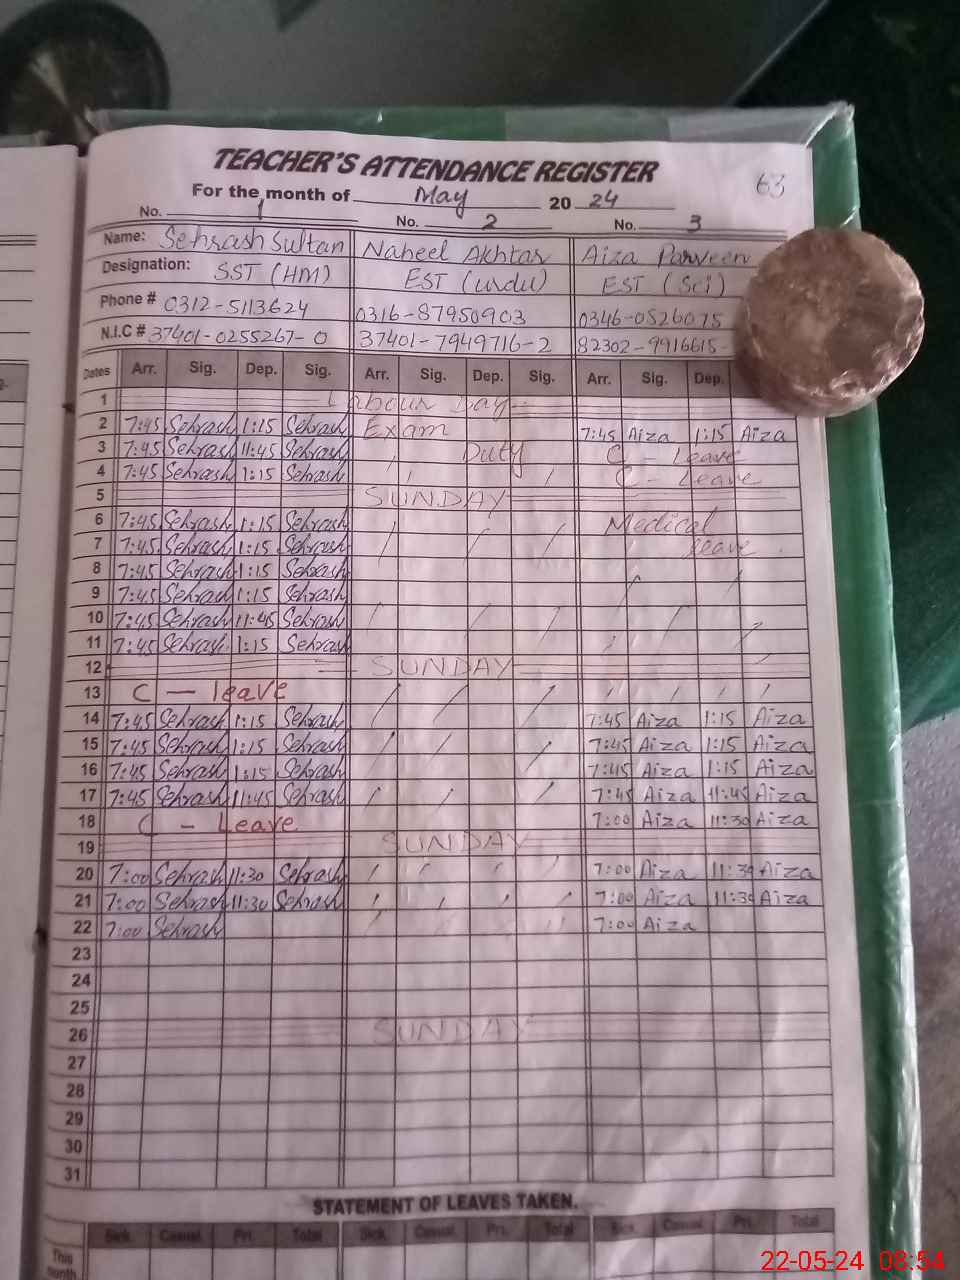 TEACHER'S ATTENDANCE REGISTER
63
For the month of May 20 24
No. 1 No. 2 No. 3
Name: Sehrash Sultan Nabeel Akhtar Aiza Parveen
Designation: SST (HM) EST (urdu) EST (Sci)
Phone # 0312-5113624 0316-87950903 0346-0526075
N.I.C # 37401-0255267-0 37401-7949716-2 82302-9916615-
Dates Arr. Sig. Dep. Sig. Arr. Sig. Dep. Sig. Arr. Sig. Dep.
1 Labour Day
2 7:45 Sehrash 1:15 Sehrash Exam 7:45 Aiza 1:15 Aiza
3 7:45 Sehrash 11:45 Sehrash Duty C - Leave
4 7:45 Sehrash 1:15 Sehrash C - Leave
5 SUNDAY
6 7:45 Sehrash 1:15 Sehrash Medical
7 7:45 Sehrash 1:15 Sehrash leave
8 7:45 Sehrash 1:15 Sehrash
9 7:45 Sehrash 1:15 Sehrash
10 7:45 Sehrash 11:45 Sehrash
11 7:45 Sehrash 1:15 Sehrash
12 SUNDAY
13 C - leave
14 7:45 Sehrash 1:15 Sehrash 7:45 Aiza 1:15 Aiza
15 7:45 Sehrash 1:15 Sehrash 7:45 Aiza 1:15 Aiza
16 7:45 Sehrash 1:15 Sehrash 7:45 Aiza 1:15 Aiza
17 7:45 Sehrash 11:45 Sehrash 7:45 Aiza 11:45 Aiza
18 C - Leave 7:00 Aiza 11:30 Aiza
19 SUNDAY
20 7:00 Sehrash 11:30 Sehrash 7:00 Aiza 11:30 Aiza
21 7:00 Sehrash 11:30 Sehrash 7:00 Aiza 11:30 Aiza
22 7:00 Sehrash 7:00 Aiza
23
24
25
26 SUNDAY
27
28
29
30
31
STATEMENT OF LEAVES TAKEN.
Sick. Casual. Pri. Total Sick. Casual. Pri. Total Sick. Casual. Pri. Total
This
month
22-05-24 08:54